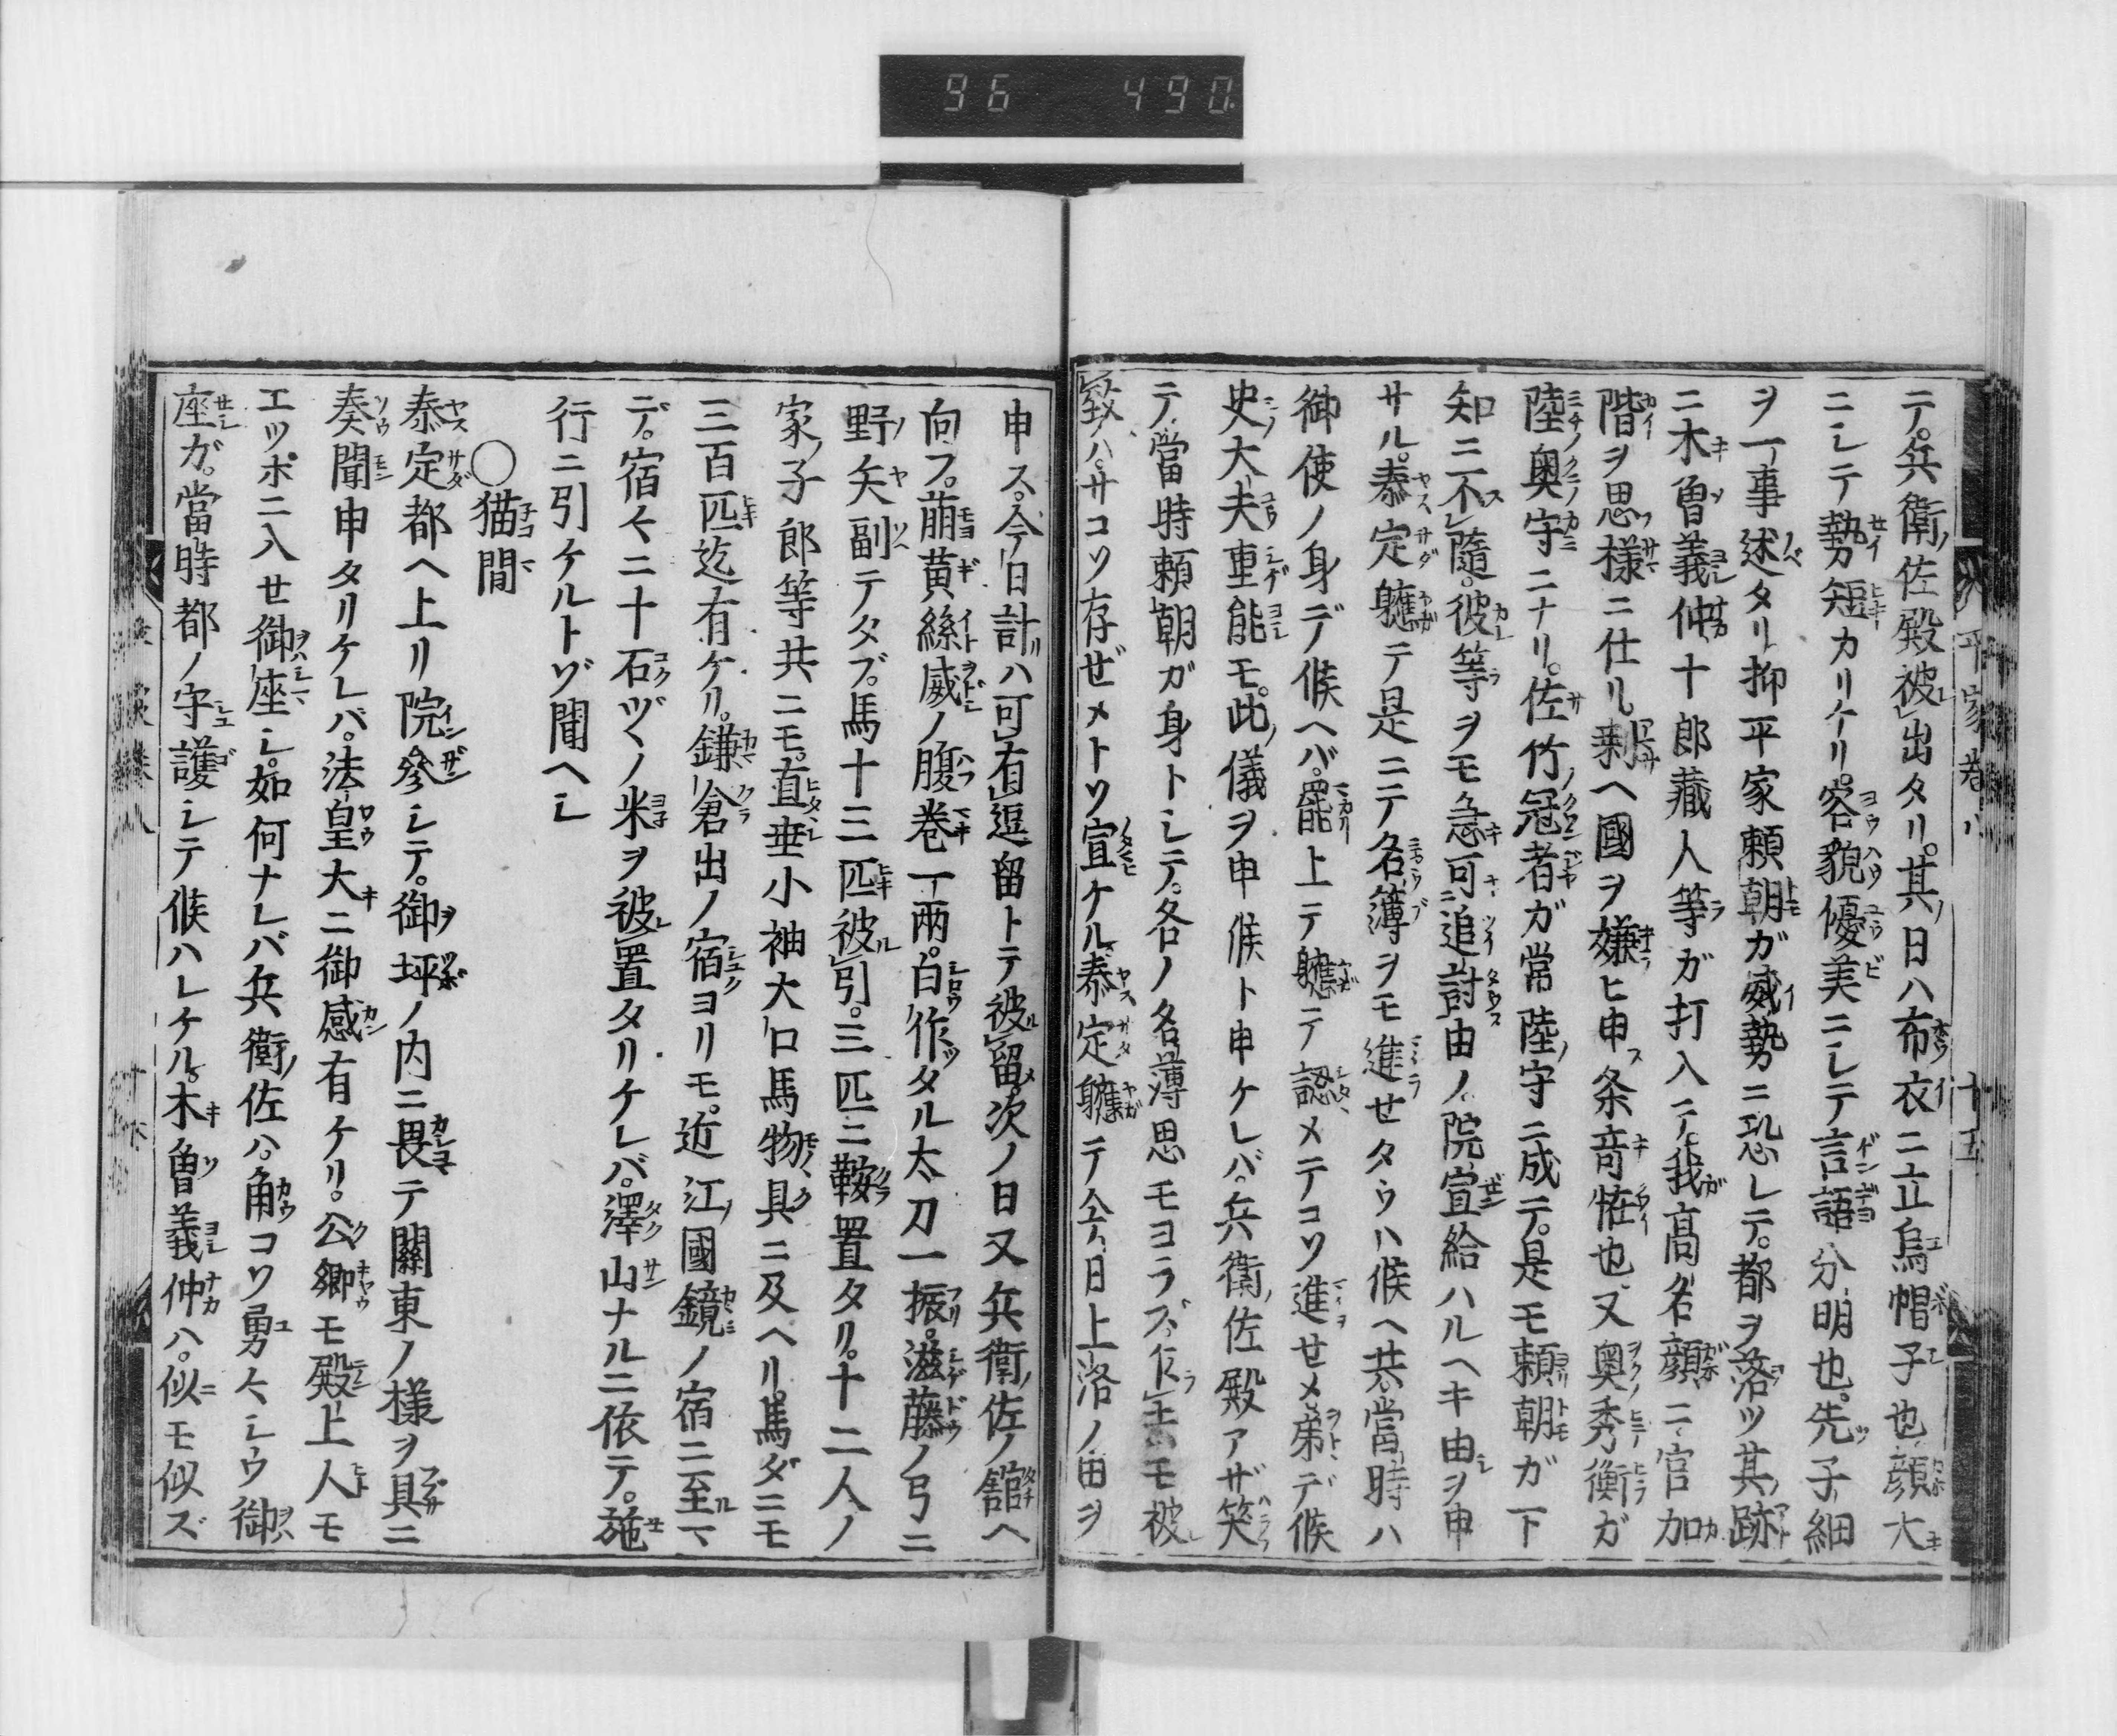 96 490
平家巻八 十五
テ。兵衛佐殿被出タリ。其日ハ布衣ニ立烏帽子也顔大
ニシテ勢短カリケリ。容貌優美ニシテ言語分明也。先子細
ヲ一事述タリ抑平家頼朝ガ威勢ニ恐レテ。都ヲ落ツ其跡
ニ木曽義仲十郎蔵人等ガ打入テ。我高名顔ニ官加
階ヲ思様ニ仕リ。剰ヘ國ヲ嫌ヒ申条奇恠也又奥秀衡ガ
陸奥守ニナリ。佐竹冠者ガ常陸守ニ成テ。是モ頼朝ガ下
知ニ不隨。彼等ヲモ急可追討由ノ院宣給ハルヘキ由ヲ申
サル。泰定軈テ是ニテ名簿ヲモ進セタウハ候ヘ共當時ハ
御使ノ身デ候ヘバ。罷上テ軈テ認メテコソ進セメ弟デ候
史大夫重能モ。此儀ヲ申候ト申ケレバ。兵衛佐殿アザ笑
テ當時頼朝ガ身トシテ。各ノ名薄思モヨラズ乍去モ被
致ハ。サコソ存ゼメトソ宣ケル泰定軈テ今日上洛ノ由ヲ
申ス。今日計ハ可有逗留トテ被留次ノ日又兵衛佐ノ舘ヘ
向フ。萠黄絲威ノ腹巻一兩。白作ツタル太刀一振。滋藤ノ弓ニ
野矢副テタブ。馬十三匹被引。三匹ニ鞍置タリ。十二人ノ
家子郎等共ニモ。直垂小袖大口馬物具ニ及ヘリ。馬ダニモ
三百匹迄有ケリ。鎌倉出ノ宿ヨリモ。近江國鏡ノ宿ニ至マ
デ。宿々ニ十石ヅヽノ米ヲ被置タリケレバ。澤山ナルニ依テ。施
行ニ引ケルトゾ聞ヘシ
〇猫間
泰定都ヘ上リ院參シテ。御坪ノ内ニ畏テ關東ノ様ヲ具ニ
奏聞申タリケレバ。法皇大ニ御感有ケリ。公卿モ殿上人モ
エツボニ入セ御座シ。如何ナレバ兵衛佐ハ。角コソ勇々シウ御
座ガ。當時都ノ守護シテ候ハレケル。木曽義仲ハ。似モ似ズ